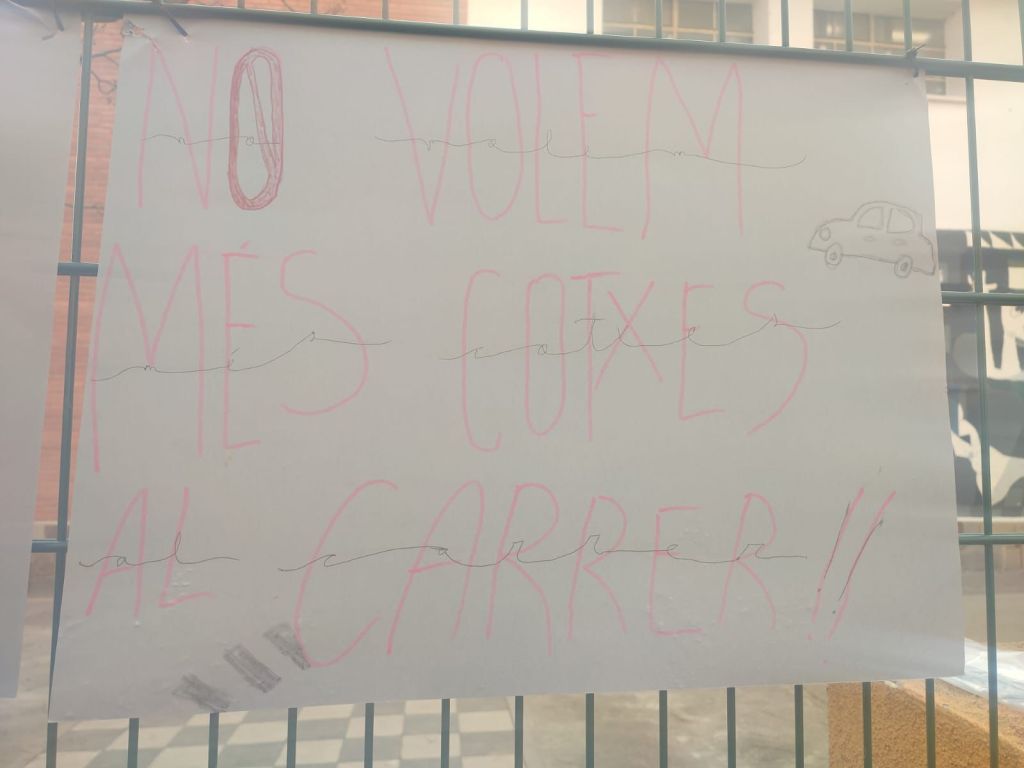 NO VOLEM
no volem
MÉS COTXES
més cotxes
AL CARRER!!
al carrer